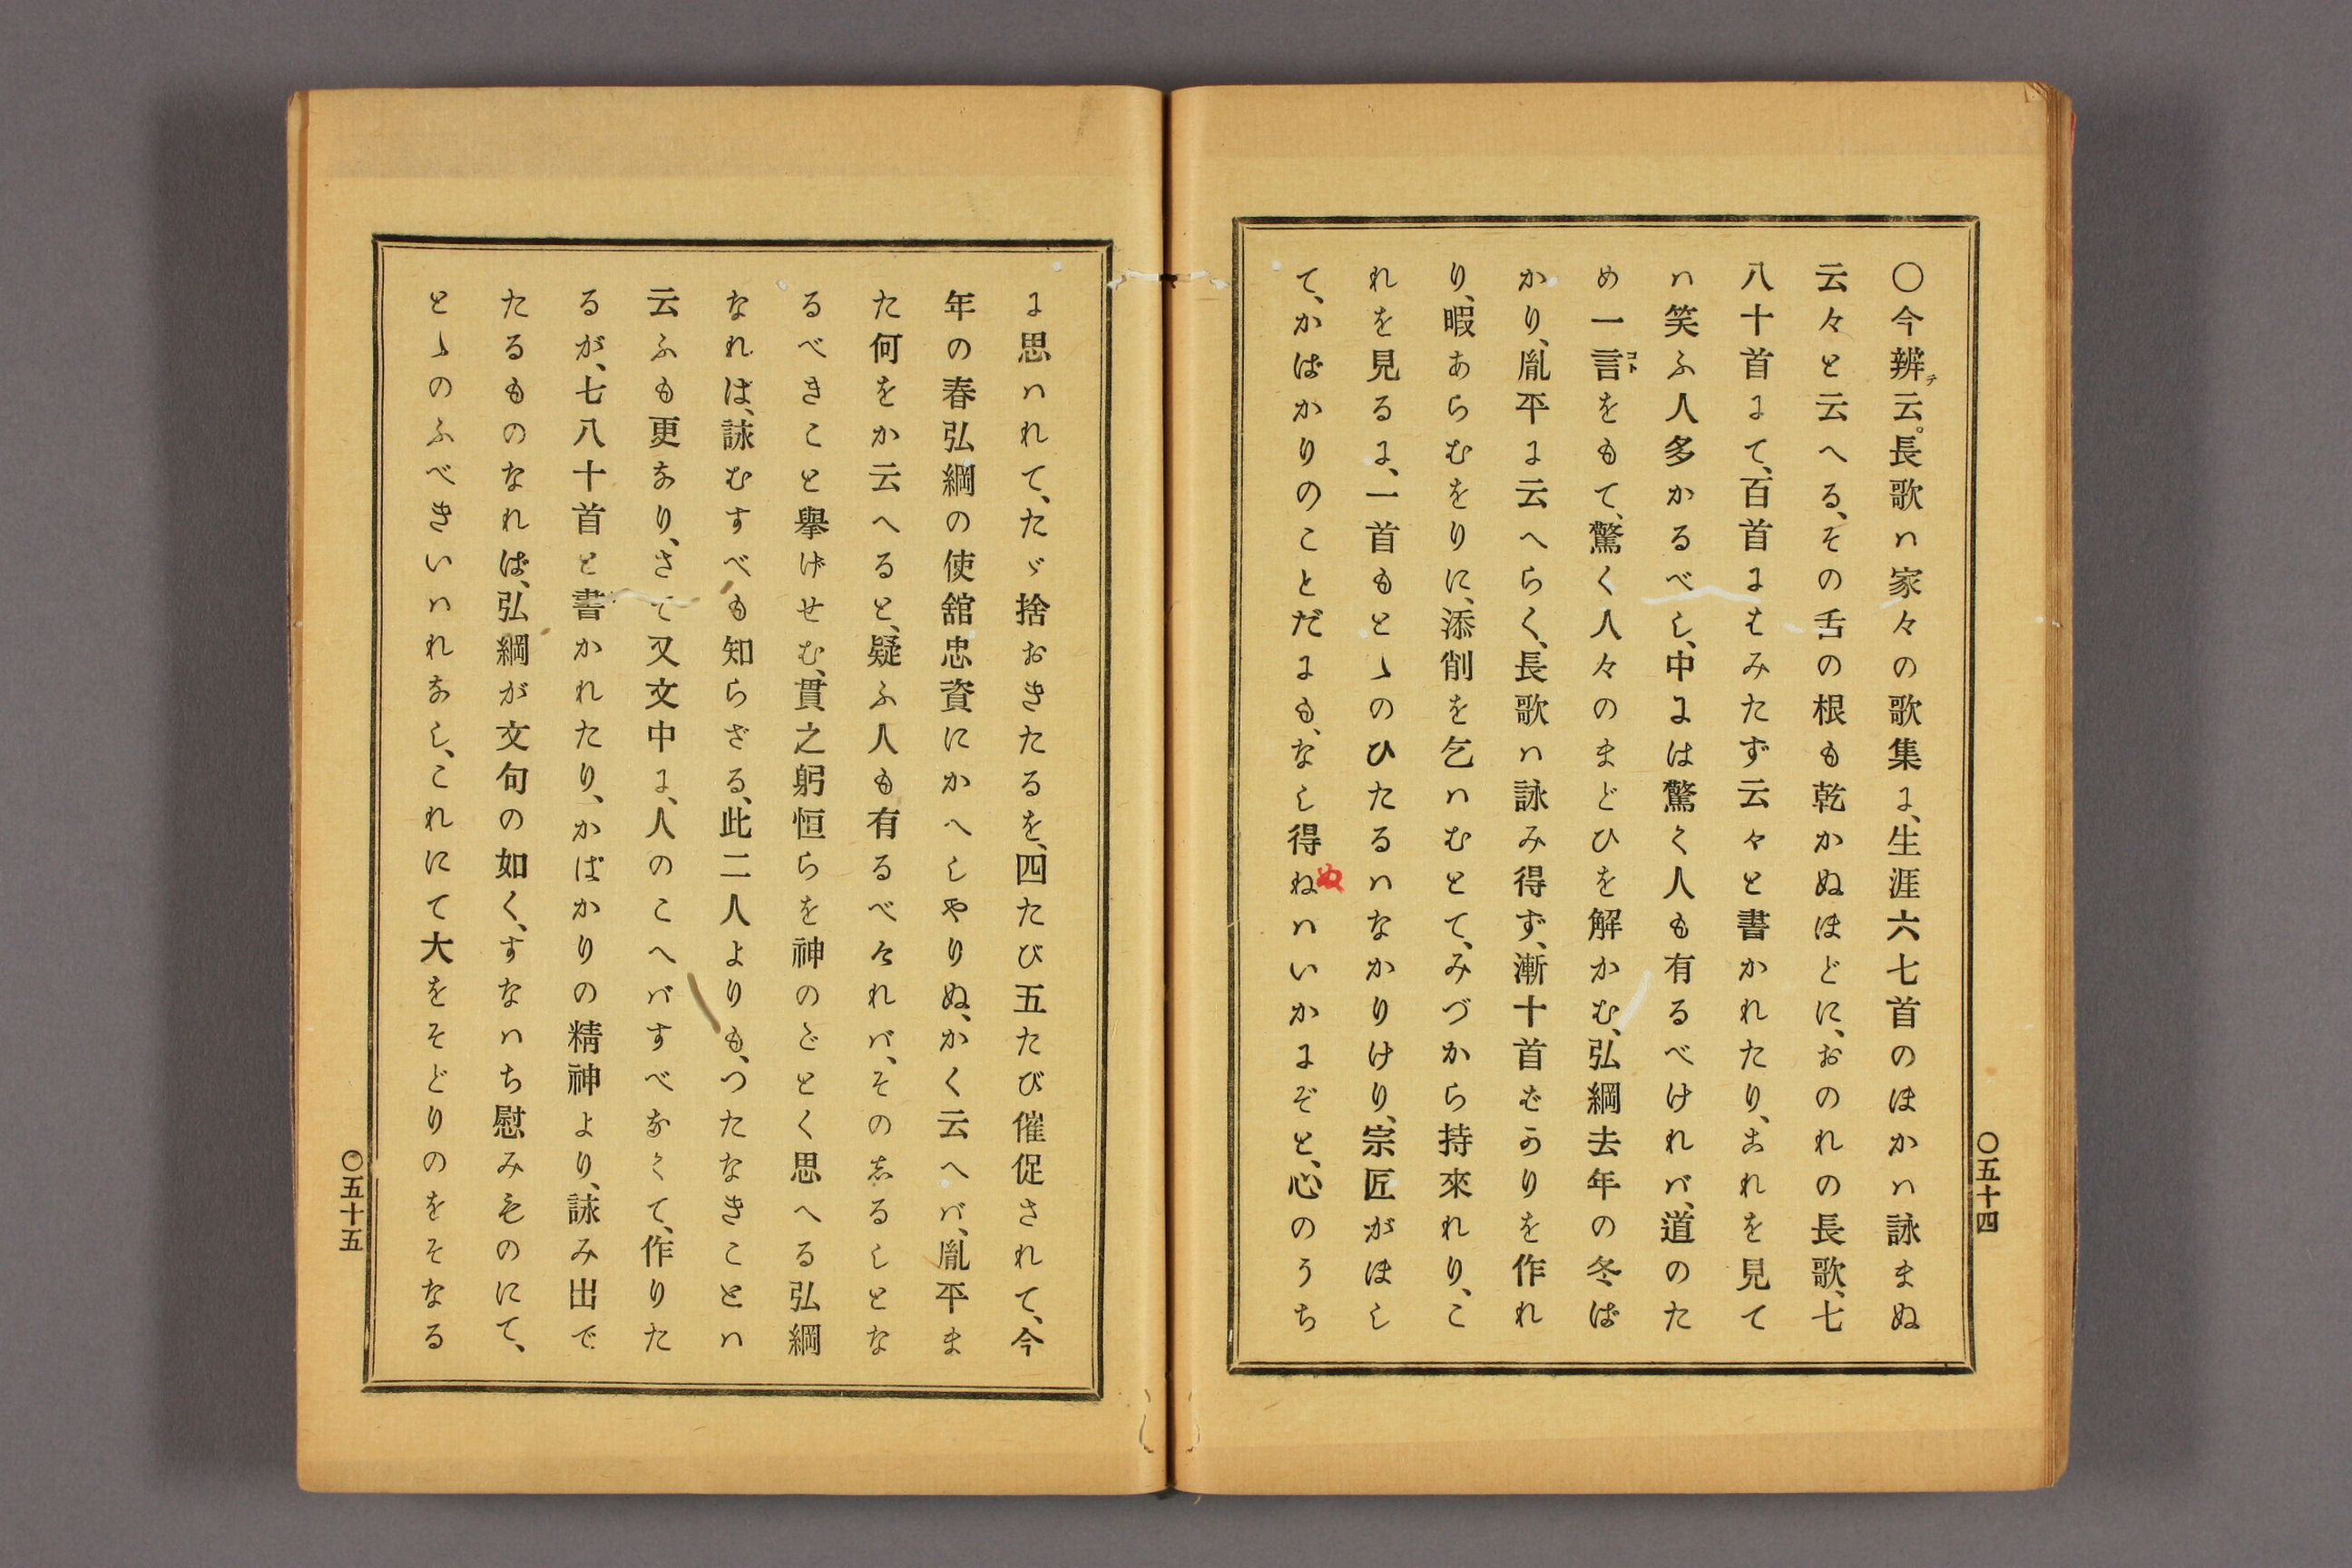 〇今辨テ云。長歌ハ家々の歌集に、生涯六七首のほかハ詠まぬ
云々と云へる、その舌の根も乾かぬほどに、おのれの長歌、七
八十首にて、百首にもみたず云々と書かれたり、これを見て
ハ笑ふ人多かるべし、中には驚く人も有るべけれバ、道のた
め一言コトをもて、驚く人々のまどひを解かむ、弘綱去年の冬ば
かり、胤平に云へらく、長歌ハ詠み得ず、漸十首むかりを作れ
り、暇あらむをりに、添削を乞ハむとて、みづから持來れり、こ
れを見るに、一首もとゝのひたるハなかりけり、宗匠がほし
て、かばかりのことだにも、なし得ねぬハいかにぞと、心のうち
〇五十四
に思ハれて、たゞ捨おきたるを、四たび五たび催促されて、今
年の春弘綱の使舘忠資にかへしやりぬ、かく云へバ、胤平ま
た何をか云へると、疑ふ人も有るべけれバ、そのしるしとな
るべきこと擧げせむ、貫之躬恒らを神のごとく思へる弘綱
なれは、詠むすべも知らざる、此二人よりも、つたなきことハ
云ふも更なり、さて又文中に、人のこへバすべなくて、作りた
るが、七八十首と書かれたり、かばかりの精神より、詠み出で
たるものなれば、弘綱が文句の如く、すなハち慰みものにて、
とゝのふべきいハれなし、これにて大をそどりのをそなる
〇五十五